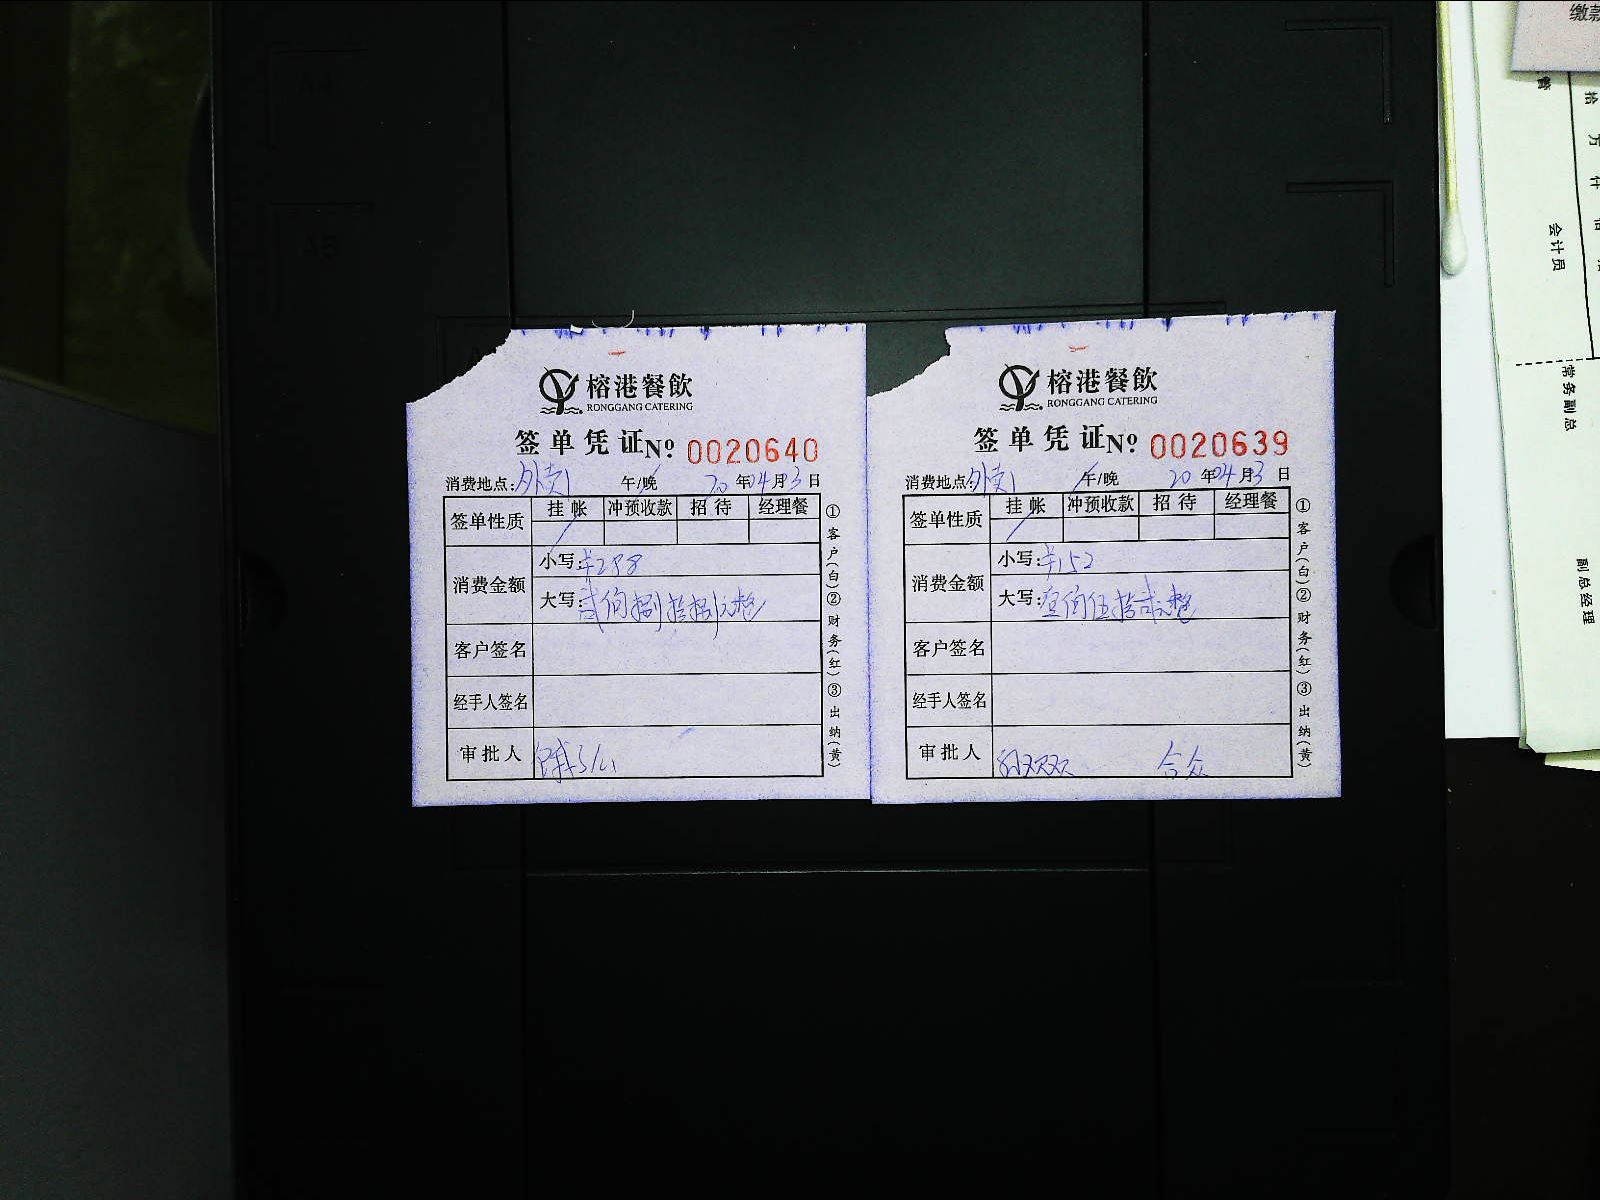 榕港餐飲
RONGGANG CATERING
签单凭证 Nº 0020640
消费地点:外卖1 午/晚 20年04月3日
签单性质 挂帐 冲预收款 招待 经理餐
消费金额
小写:¥288
大写:贰佰捌拾捌元整
客户签名
经手人签名
审批人
①客户(白)②财务(红)③出纳(黄)
榕港餐飲
RONGGANG CATERING
签单凭证 Nº 0020639
消费地点:外卖1 午/晚 20年04月3日
签单性质 挂帐 冲预收款 招待 经理餐
消费金额
小写:¥152
大写:壹佰伍拾贰元整
客户签名
经手人签名
审批人 孙双双 合众
①客户(白)②财务(红)③出纳(黄)
缴款
会计员
常务副总
副总经理
A5